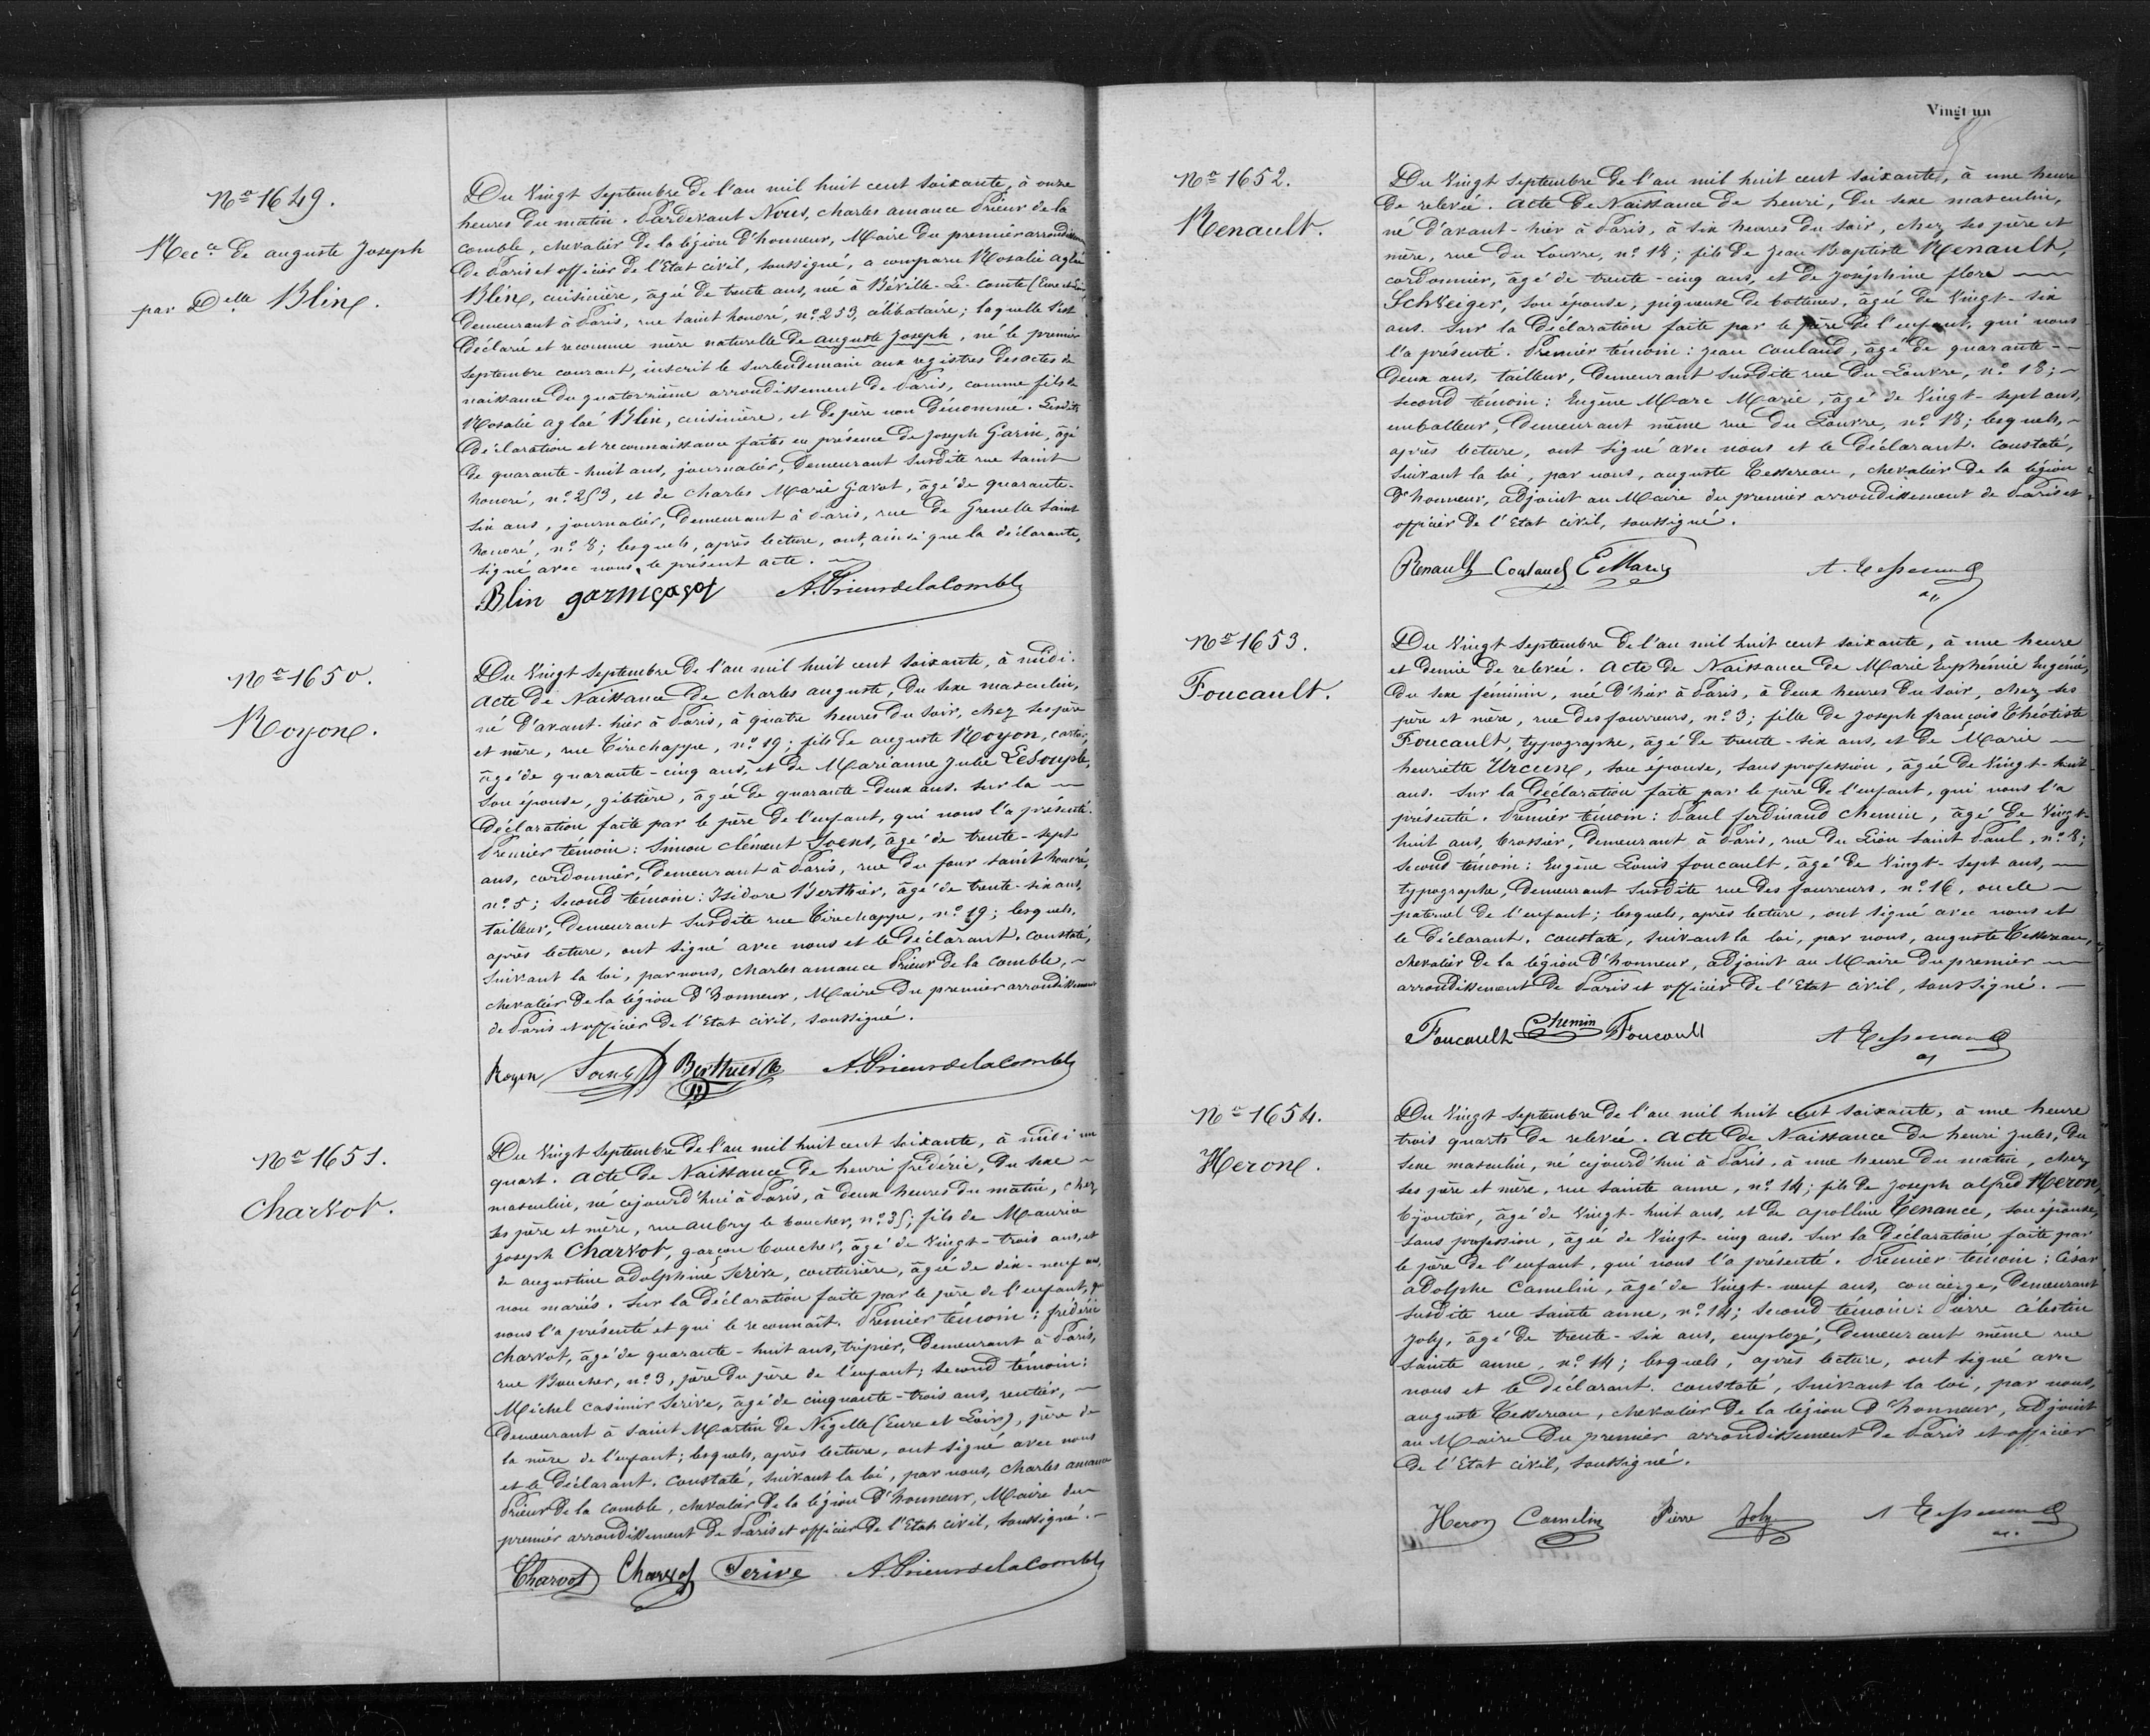 No 1649.
Recce de auguste Joseph
par Delle Blin.
Du Vingt Septembre de l'an mil huit cent soixante, à onze
heures du matin. Pardevant Nous, Charles amance Prieur de la
comble, chevalier de la légion d'honneur, Maire du premier arrondissement
de Paris et officier de l'Etat civil, soussigné, a comparu Rosalie aglaé
Blin, cuisinière, âgée de trente ans, née à Béville-Le-Comte (Eure et Loir)
demeurant à Paris, rue saint honoré, no 253, célibataire; laquelle s'est
déclarée et reconnue mère naturelle de auguste Joseph, né le premier
Septembre courant, inscrit le surlendemain aux registres des actes de
naissance du quatorzième arrondissement de Paris, comme fils de
Rosalie aglaé Blin, cuisinière, et de père non dénommé. Lesdites
Déclaration et reconnaissance faites en présence de Joseph Garin, âgé
de quarante-huit ans, journalier, demeurant susdite rue saint
honoré, no 253, et de charles Marie Gavot, âgé de quarante-
six ans, journalier, demeurant à Paris, rue de Grenelle saint
honoré, no 8; lesquels, après lecture, ont, ainsi que la déclarante,
signé avec nous le présent acte.
Blin garin gavot A. Prieur de la Comble
No 1650.
Royon.
Du Vingt Septembre de l'an mil huit cent soixante, à midi.
acte de Naissance de charles auguste, du sexe masculin,
né d'avant-hier à Paris, à quatre heures du soir, chez ses père
et mère, rue Tirechappe, no 19; fils de auguste Royon, cartier,
âgé de quarante-cinq ans, et de Marianne Julie Lesouple,
son épouse, giletière, âgée de quarante-deux ans. sur la
déclaration faite par le père de l'enfant, qui nous l'a présenté.
Premier témoin: Simon clément Soens, âgé de trente-sept
ans, cordonnier, demeurant à Paris, rue du four saint honoré,
no 5; second témoin: Isidore Berthier, âgé de trente-six ans,
tailleur, demeurant susdite rue Tirechappe, no 19; lesquels,
après lecture, ont signé avec nous et le déclarant. constaté,
suivant la loi, par nous, charles amance Prieur de la comble,
chevalier de la légion d'honneur, Maire du premier arrondissement
de Paris et officier de l'Etat civil, soussigné.
Royon Soens Berthier A. Prieur de la Comble
No 1651.
Charvot.
Du Vingt septembre de l'an mil huit cent soixante, à midi un
quart. acte de Naissance de henri frédéric, du sexe
masculin, né cejourd'hui à Paris, à deux heures du matin, chez
ses père et mère, rue aubry le boucher, no 35; fils de Maurice
Joseph Charvot, garçon boucher, âgé de vingt-trois ans, et
de augustine adolphine Serive, couturière, âgée de dix-neuf ans,
non mariés. sur la déclaration faite par le père de l'enfant, qui
nous l'a présenté et qui le reconnaît. Premier témoin: frédéric
charvot, âgé de quarante-huit ans, tripier, demeurant à Paris,
rue Boucher, no 3, père du père de l'enfant; second témoin:
Michel casimir Serive, âgé de cinquante-trois ans, rentier,
demeurant à saint Martin de Nigelle (Eure et Loir), père de
la mère de l'enfant; lesquels, après lecture, ont signé avec nous
et le déclarant. constaté, suivant la loi, par nous, charles amance
Prieur de la comble, chevalier de la légion d'honneur, Maire du
premier arrondissement de Paris et officier de l'Etat civil, soussigné.
Charvot Charvot Serive A. Prieur de la Comble
Vingt un
No 1652.
Renault.
Du Vingt septembre de l'an mil huit cent soixante, à une heure
de relevée. acte de Naissance de henri, du sexe masculin,
né d'avant-hier à Paris, à six heures du soir, chez ses père et
mère, rue du Louvre, no 18; fils de Jean Baptiste Renault,
cordonnier, âgé de trente-cinq ans, et de Joséphine flore
Schveiger, son épouse, piqueuse de bottines, âgée de vingt-six
ans. sur la déclaration faite par le père de l'enfant, qui nous
l'a présenté. Premier témoin: Jean Couland, âgé de quarante-
deux ans, tailleur, demeurant susdite rue du Louvre, no 18;
second témoin: Eugène Marc Marie, âgé de vingt-sept ans,
emballeur, demeurant même rue du Louvre, no 18; lesquels,
après lecture, ont signé avec nous et le déclarant. constaté,
suivant la loi, par nous, auguste Tessereau, chevalier de la légion
d'honneur, adjoint au Maire du premier arrondissement de Paris et
officier de l'Etat civil, soussigné.
Renault Couland E Marie A. Tessereau
No 1653.
Foucault.
Du Vingt septembre de l'an mil huit cent soixante, à une heure
et demie de relevée. acte de Naissance de Marie Euphémie Eugénie,
du sexe féminin, née d'hier à Paris, à deux heures du soir, chez ses
père et mère, rue des fourreurs, no 3; fille de Joseph françois Théotiste
Foucault, typographe, âgé de trente-six ans, et de Marie
henriette Urcun, son épouse, sans profession, âgée de vingt-huit
ans. sur la déclaration faite par le père de l'enfant, qui nous l'a
présenté. Premier témoin: Paul ferdinand Chemin, âgé de vingt-
huit ans, brossier, demeurant à Paris, rue du Lion saint Paul, no 8;
second témoin: Eugène Louis foucault, âgé de vingt-sept ans,
typographe, demeurant susdite rue des fourreurs, no 16, oncle
paternel de l'enfant; lesquels, après lecture, ont signé avec nous et
le déclarant. constaté, suivant la loi, par nous, auguste Tessereau,
chevalier de la légion d'honneur, adjoint au Maire du premier
arrondissement de Paris et officier de l'Etat civil, soussigné.
Foucault Chemin Foucault A Tessereau
No 1654.
Heron.
Du Vingt septembre de l'an mil huit cent soixante, à une heure
trois quarts de relevée. acte de Naissance de henri Jules, du
sexe masculin, né cejourd'hui à Paris, à une heure du matin, chez
ses père et mère, rue sainte anne, no 14; fils de Joseph alfred Heron,
bijoutier, âgé de vingt-huit ans, et de apolline Tenance, son épouse,
sans profession, âgée de vingt-cinq ans. sur la déclaration faite par
le père de l'enfant, qui nous l'a présenté. Premier témoin: César
adolphe Camelin, âgé de vingt-neuf ans, concierge, demeurant
susdite rue sainte anne, no 14; second témoin: Pierre célestin
Joly, âgé de trente-six ans, employé, demeurant même rue
sainte anne, no 14; lesquels, après lecture, ont signé avec
nous et le déclarant. constaté, suivant la loi, par nous,
auguste Tessereau, chevalier de la légion d'honneur, adjoint
au Maire du premier arrondissement de Paris et officier
de l'Etat civil, soussigné.
Heron Camelin Pierre Joly A Tessereau